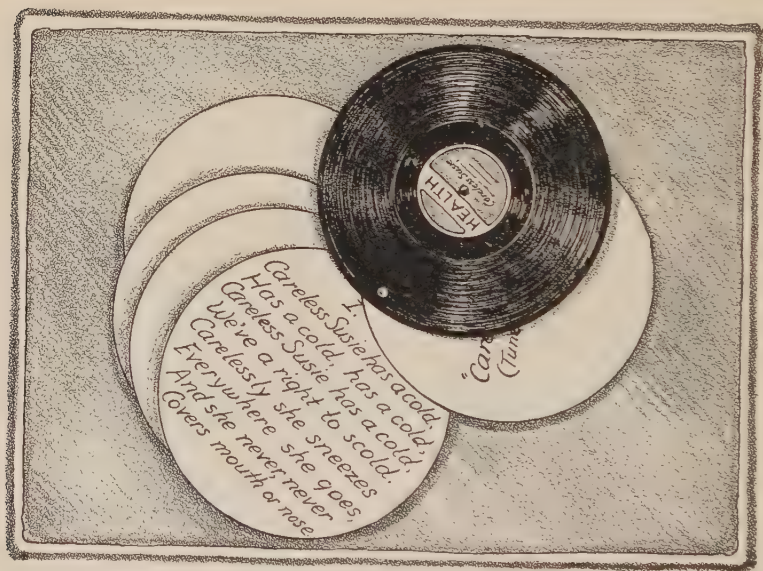 HEALTH
Careless Susie
"Care
(Tune
I.
Careless Susie has a cold,
Has a cold, has a cold,
Careless Susie has a cold
We've a right to scold.
Carelessly she sneezes
Everywhere she goes,
And she never, never
Covers mouth or nose